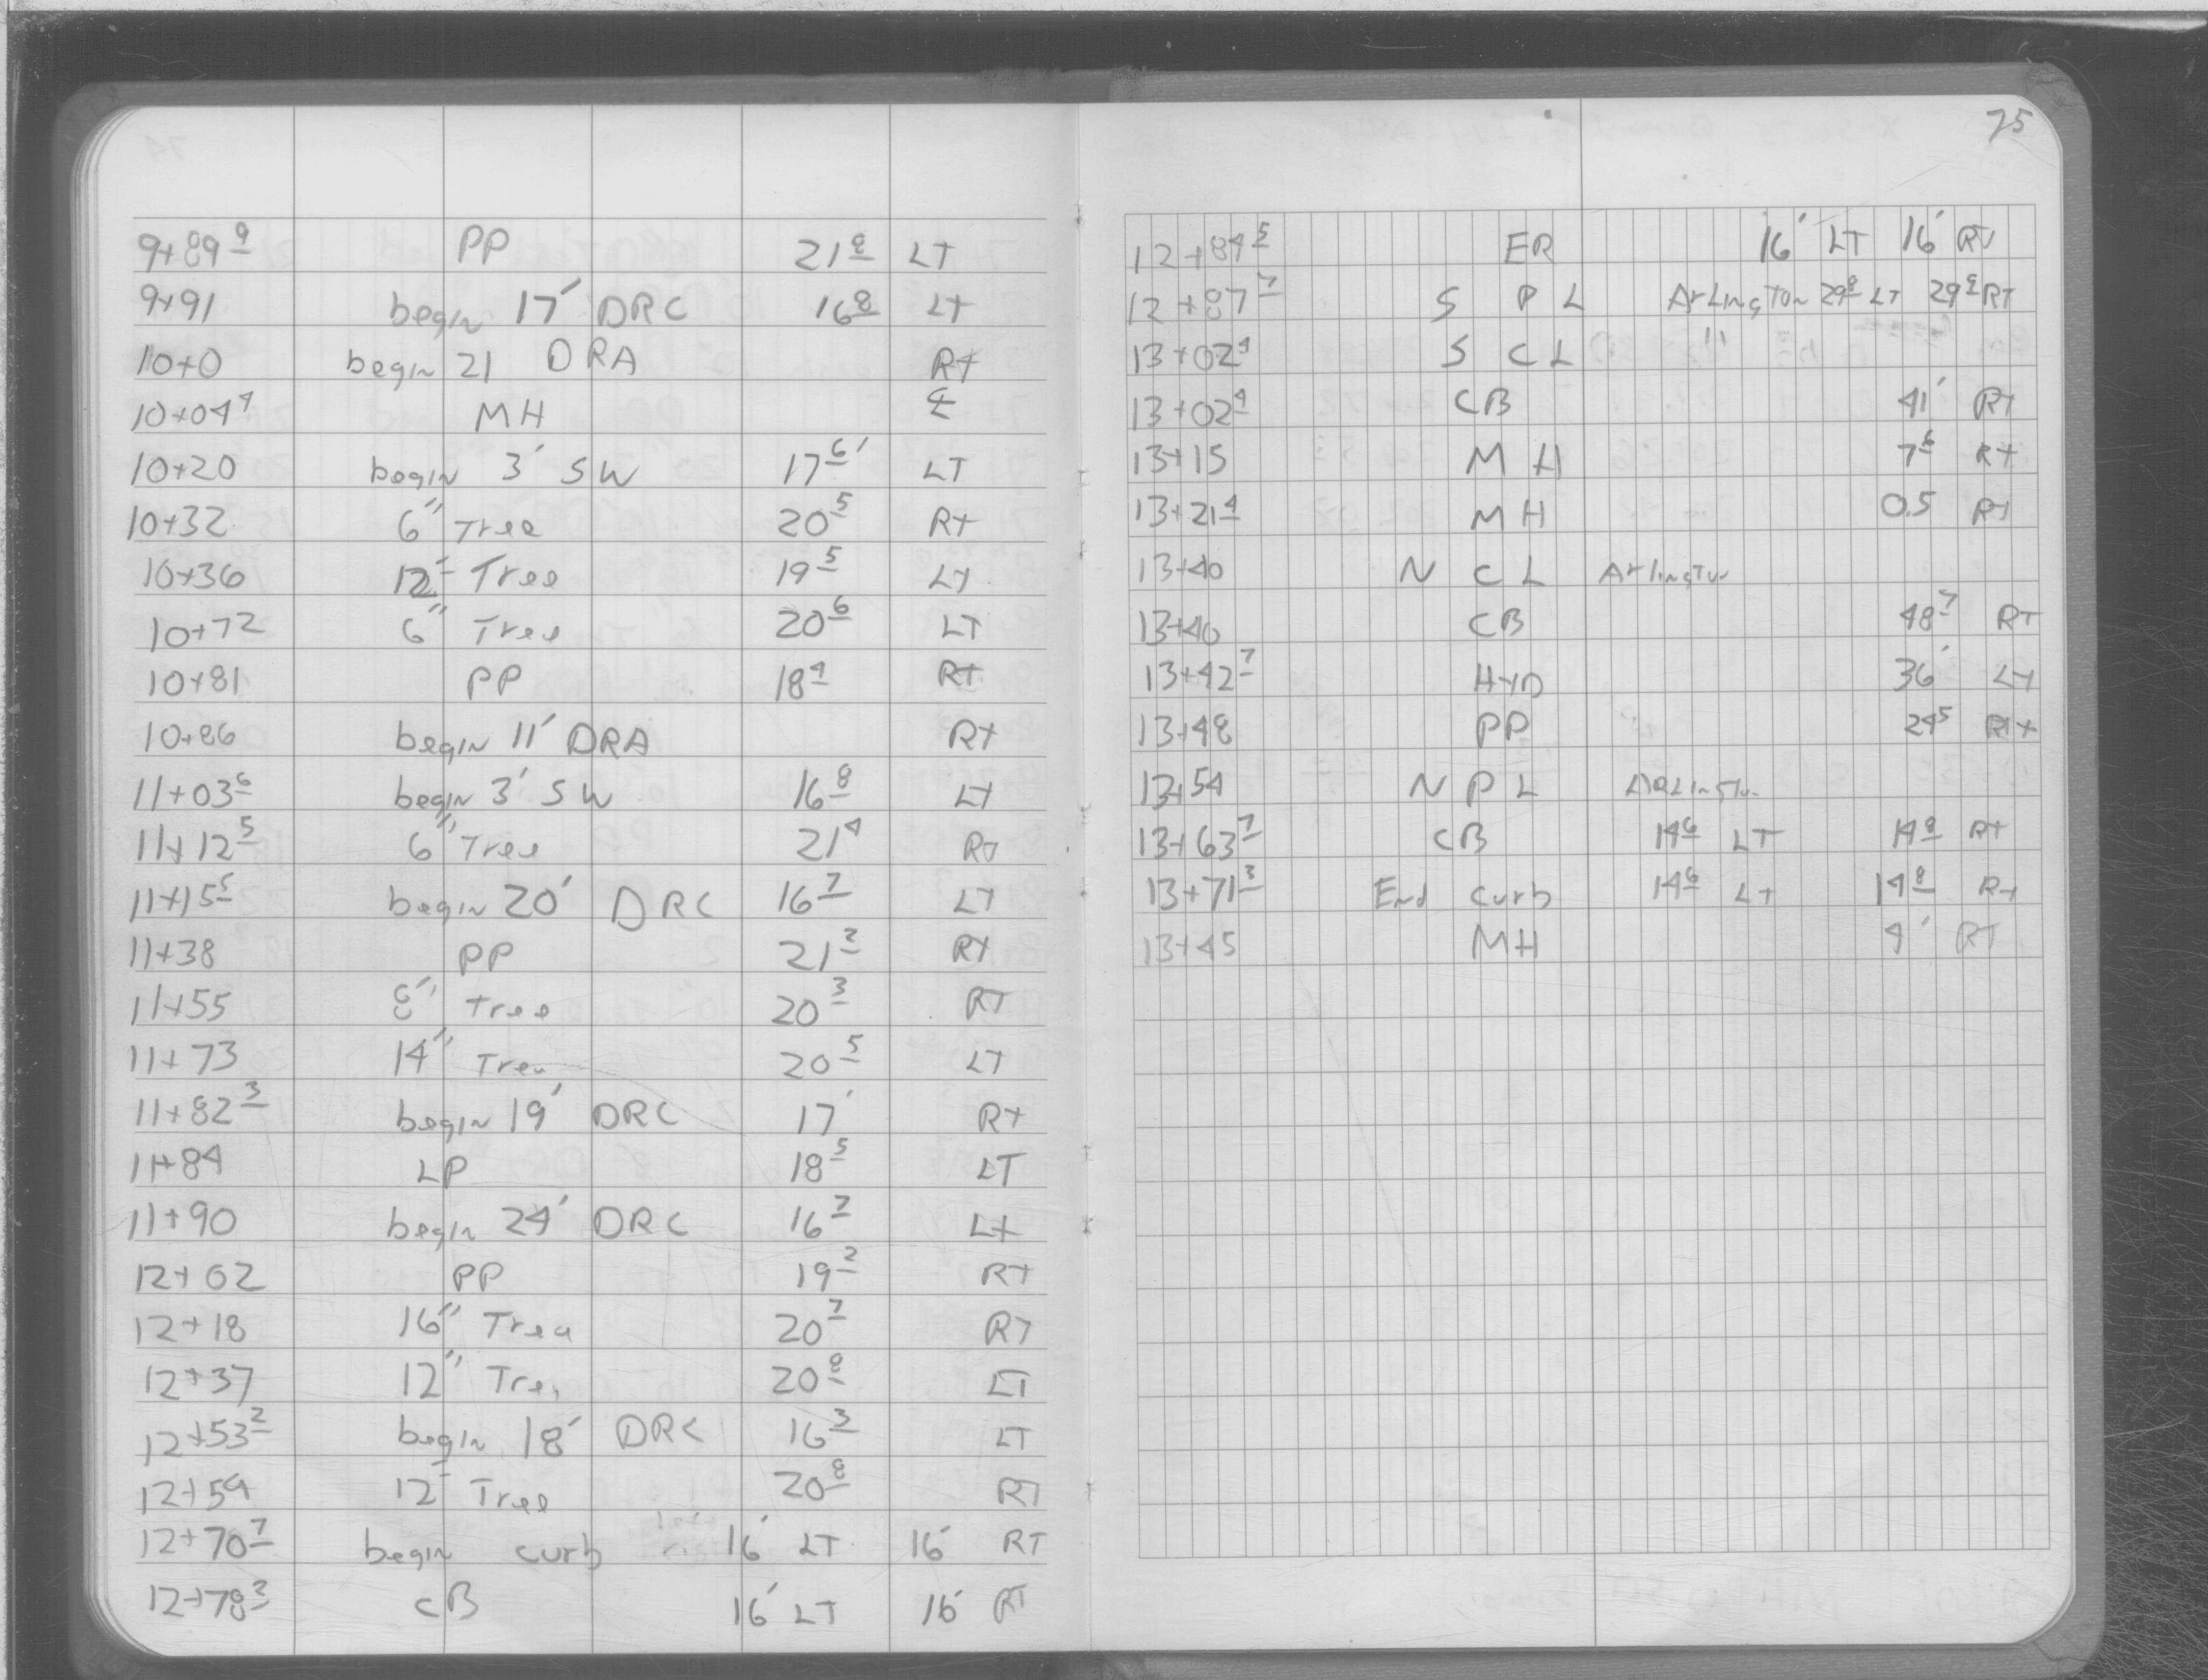 9+89 9 PP 21 8 LT
9+91 begin 17' DRC 16 8 LT
10+0 begin 21 DRA RT
10+04 4 MH ⅊
10+20 begin 3' SW 17 6' LT
10+32 6" Tree 20 5 RT
10+36 12" Tree 19 5 LT
10+72 6" Tree 20 6 LT
10+81 PP 18 4 RT
10+86 begin 11' DRA RT
11+03 6 begin 3' SW 16 8 LT
11+12 5 6" Tree 21 4 RT
11+15 5 begin 20' DRC 16 7 LT
11+38 PP 21 2 RT
11+55 8" Tree 20 3 RT
11+73 14" Tree 20 5 LT
11+82 3 begin 19' DRC 17' RT
11+84 LP 18 5 LT
11+90 begin 24' DRC 16 7 LT
12+02 PP 19 2 RT
12+18 16" Tree 20 7 RT
12+37 12" Tree 20 8 LT
12+53 2 begin 18' DRC 16 3 LT
12+59 12" Tree 20 8 RT
12+70 7 begin curb 16' LT 16' RT
12+78 3 CB 16' LT 16' RT
75
12+84 5 ER 16' LT 16' RT
12+87 7 S P L Arlington 29 8 LT 29 8 RT
13+02 4 S C L "
13+02 4 CB 41' RT
13+15 MH 7 6 RT
13+21 4 MH 0.5 RT
13+40 N C L Arlington
13+40 CB 48 7 RT
13+42 7 HYD 36' LT
13+48 PP 24 5 RT
13+54 N P L Arlington
13+63 7 CB 14 6 LT 14 8 RT
13+71 3 End curb 14 6 LT 14 8 RT
13+45 MH 4' RT